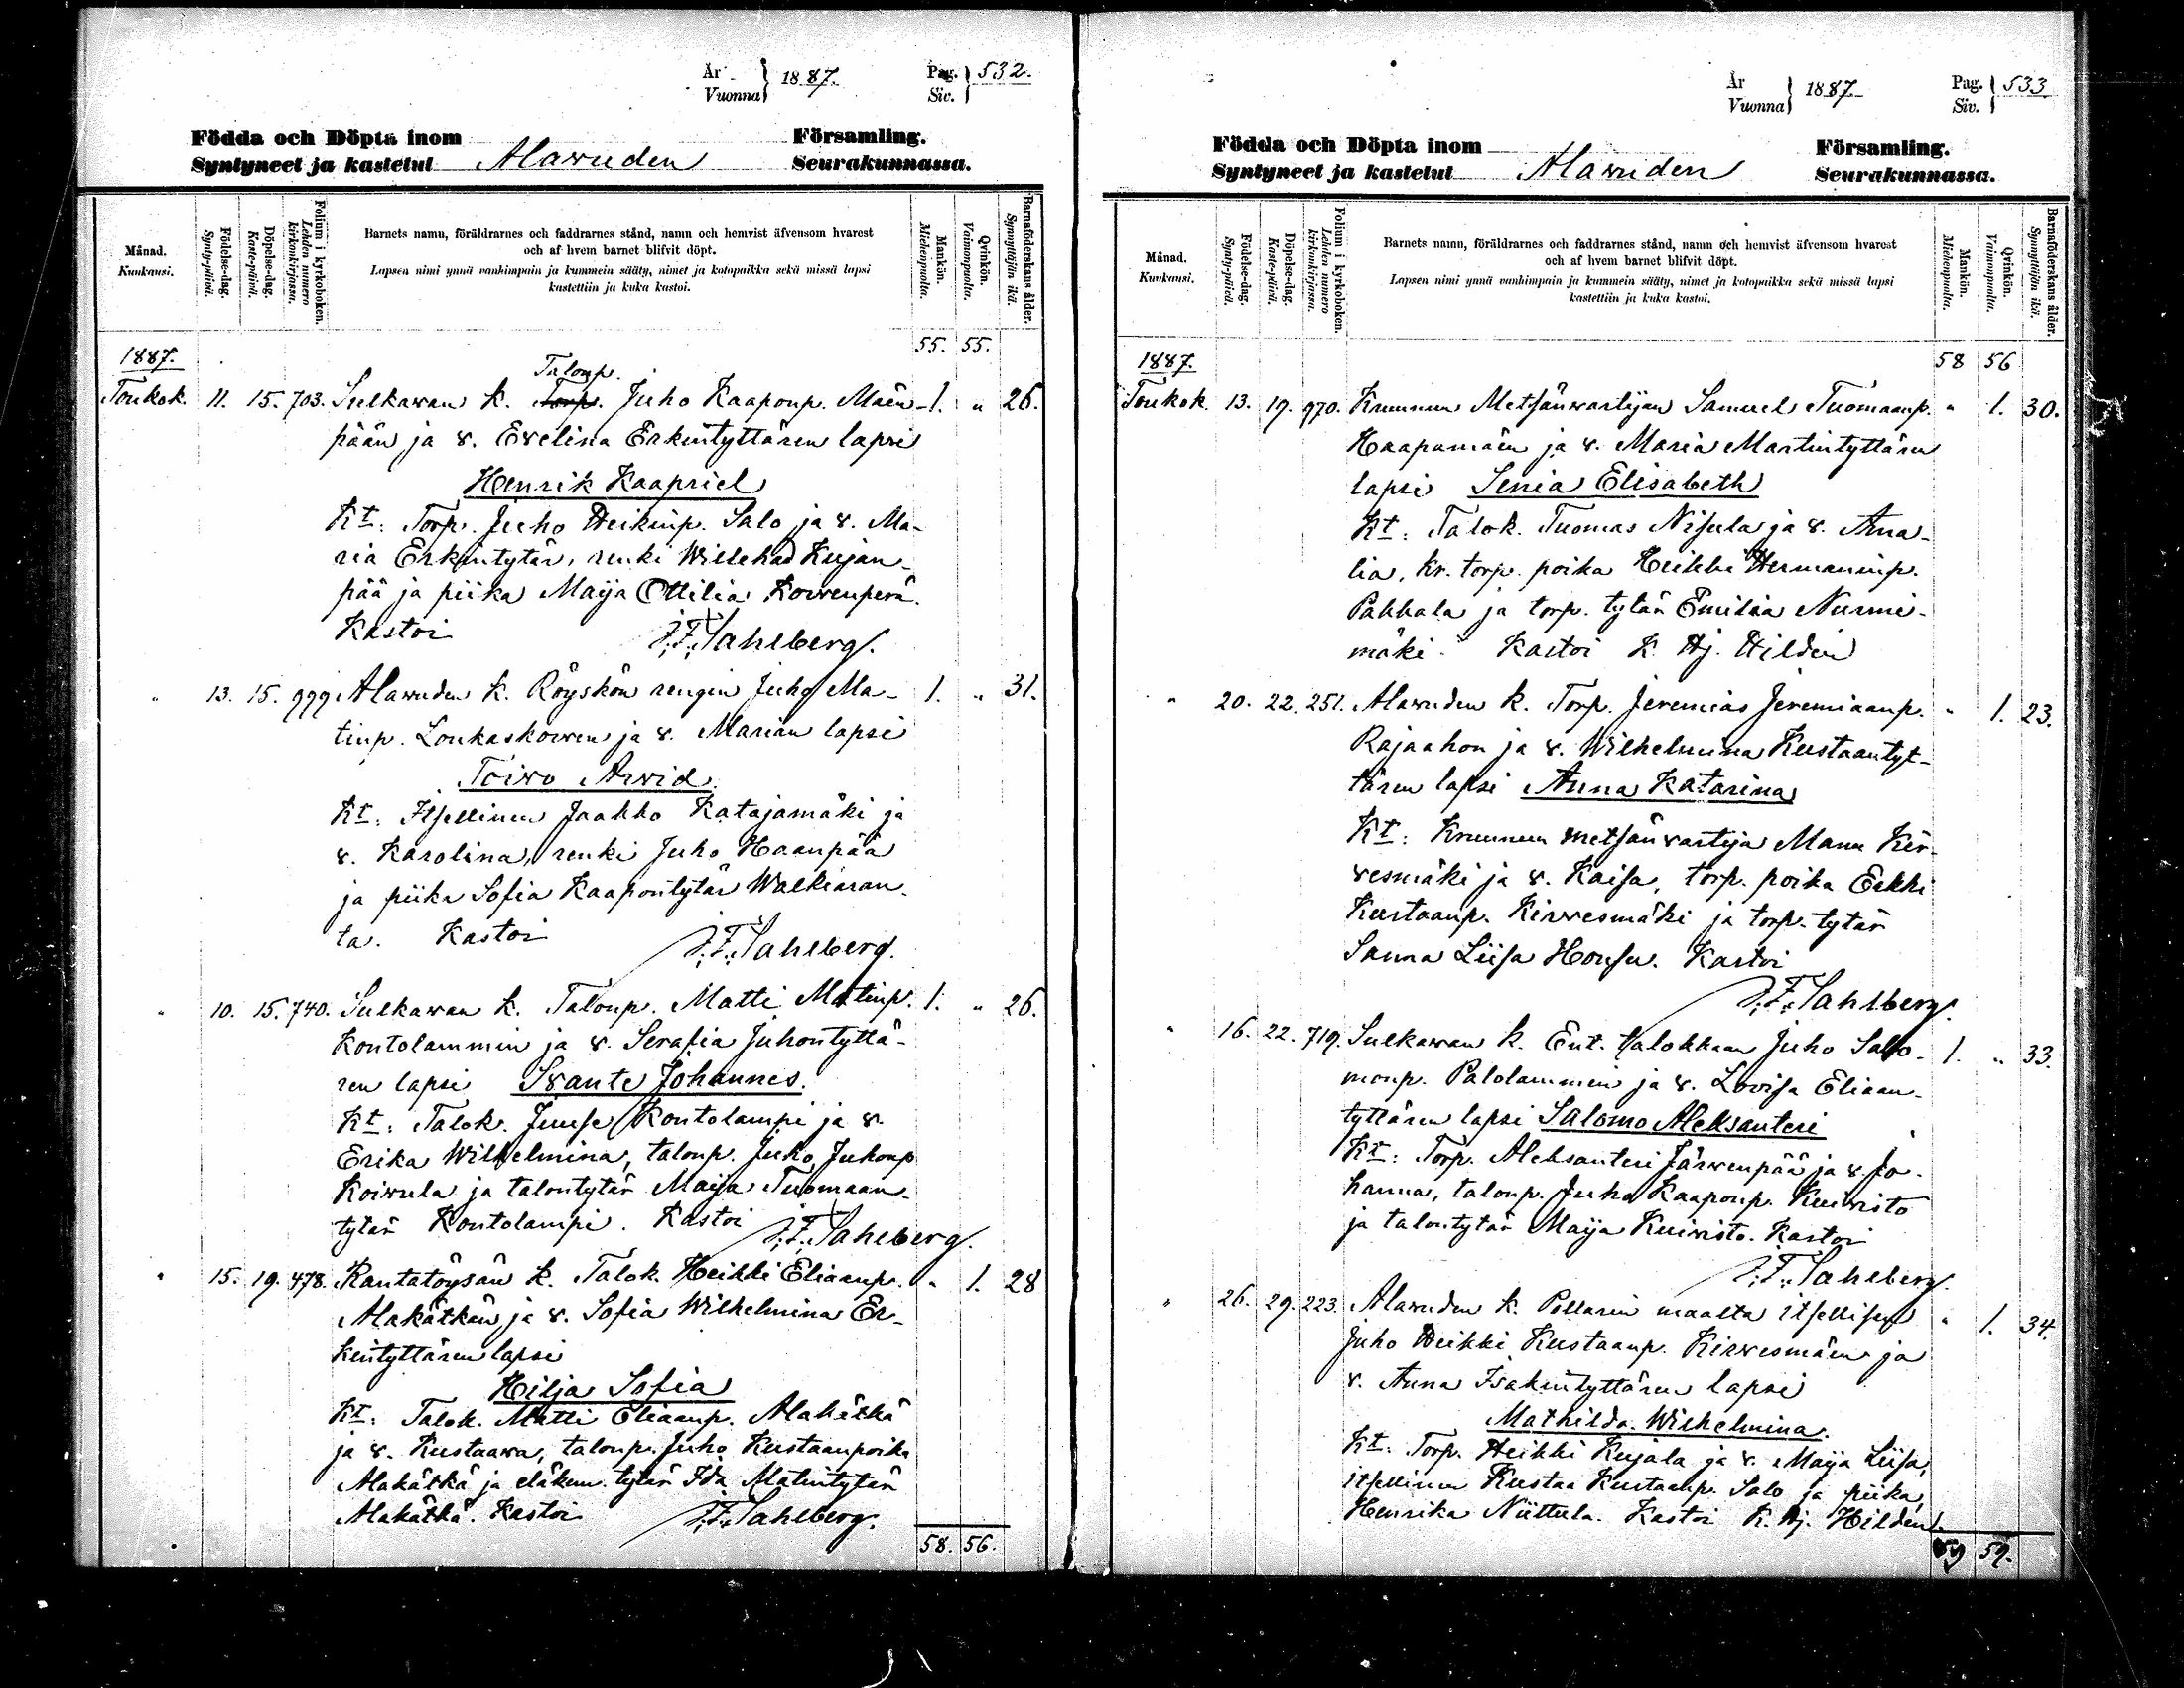 År Vuonna } 1887. Pag. Siv. } 532.
Födda och Döpta inom Församling.
Syntyneet ja kastetut Alawuden Seurakunnassa.
Månad.
Kuukausi.
Födelse-dag.
Synty-päivä.
Döpelse-dag.
Kaste-päivä.
Folium i kyrkoboken.
Lehden numero kirkonkirjassa.
Barnets namn, föräldrarnes och faddrarnes stånd, namn och hemvist äfvensom hvarest
och af hvem barnet blifvit döpt.
Lapsen nimi ynnä vanhimpain ja kummein sääty, nimet ja kotopaikka sekä missä lapsi
kastettiin ja kuka kastoi.
Mankön.
Miehenpuolta.
Qvinkön.
Vaimonpuolta.
Barnaföderskans ålder.
Synnyttäjän ikä.
1887. 55. 55.
Talonp.
Toukok. 11. 15. 703. Sulkawan k. Torp. Juho Kaaponp. Mäen- 1. " 26.
pään ja v. Evelina Erkintyttären lapsi
Henrik Kaapriel
Kt: Torp. Juho Heikinp. Salo ja v. Ma-
ria Erkintytär, renki Willehad Kujan-
pää ja piika Maija Ottilia Korvenperä.
Kastoi J. F. Sahlberg.
" 13. 15. 999 Alawuden k. Röyskön rengin Juho Ma- 1. " 31.
tinp. Loukaskorven ja v. Marian lapsi
Toivo Arvid
Kt: Itsellinen Jaakko Katajamäki ja
v. Karolina, renki Juho Haanpää
ja piika Sofia Kaapontytär Walkiaran-
ta. Kastoi J. F. Sahlberg.
" 10. 15. 740. Sulkawan k. Talonp. Matti Matinp. 1. " 26.
Kontolammin ja v. Serafia Juhontyttä-
ren lapsi Svante Johannes.
Kt: Talok. Juuse Kontolampi ja v.
Erika Wilhelmina, talonp. Juho Juhonp
Koivula ja talontytär Maija Tuomaan-
tytär Kontolampi. Kastoi J. F. Sahlberg.
" 15. 19. 478. Rantatöysän k. Talok. Heikki Eliaanp. " 1. 28
Alakätkän ja v. Sofia Wilhelmina Er-
kintyttären lapsi
Hilja Sofia
Kt: Talok. Matti Eliaanp. Alakätkä
ja v. Kustaava, talonp. Juho Kustaanpoika
Alakätkä ja eläkem. tytär Ida Matintytär
Alakätkä. Kastoi J. F. Sahlberg.
58. 56.
År Vuonna } 1887 Pag. Siv. } 533
Födda och Döpta inom Församling.
Syntyneet ja kastetut Alawuden Seurakunnassa.
Månad.
Kuukausi.
Födelse-dag.
Synty-päivä.
Döpelse-dag.
Kaste-päivä.
Folium i kyrkoboken.
Lehden numero kirkonkirjassa.
Barnets namn, föräldrarnes och faddrarnes stånd, namn och hemvist äfvensom hvarest
och af hvem barnet blifvit döpt.
Lapsen nimi ynnä vanhimpain ja kummein sääty, nimet ja kotopaikka sekä missä lapsi
kastettiin ja kuka kastoi.
Mankön.
Miehenpuolta.
Qvinkön.
Vaimonpuolta.
Barnaföderskans ålder.
Synnyttäjän ikä.
1887. 58 56
Toukok. 13. 19. 970. Kruunun Metsänvartijan Samuel Tuomaanp. " 1. 30.
Haapamäen ja v. Maria Martintyttären
lapsi Senia Elisabeth
Kt: Talok. Tuomas Nisula ja v. Ama-
lia, kr. torp. poika Heikki Hermanninp.
Pakkala ja torp. tytär Emilia Nurmi-
mäki. Kastoi K. Hj. Hildén
" 20. 22. 251. Alawuden k. Torp. Jeremias Jeremiaanp. " 1. 23.
Rajaahon ja v. Wilhelmina Kustaantyt-
tären lapsi Anna Katarina
Kt: Kruunun metsänvartija Manu Kir-
vesmäki ja v. Kaisa, torp. poika Erkki
Kustaanp. Kirvesmäki ja torp. tytär
Sanna Liisa Housu. Kastoi
J. F. Sahlberg.
" 16. 22. 719. Sulkawan k. Ent. talokkaan Juho Salo- 1. " 33.
monp. Palolammin ja v. Lovisa Eliaan-
tyttären lapsi Salomo Aleksanteri
Kt: Torp. Aleksanteri Järvenpää ja v. Jo-
hanna, talonp. Juho Kaaponp. Kuivisto
ja talontytär Maija Kuivisto. Kastoi
J. F. Sahlberg.
" 26. 29. 223. Alawuden k. Pollarin maalta itsellisen " 1. 34.
Juho Heikki Kustaanp. Kirvesmäen ja
v. Anna Isakintyttären lapsi
Mathilda Wilhelmina.
Kt: Torp. Heikki Kujala ja v. Maija Liisa,
itsellinen Kustaa Kustaanp. Salo ja piika
Henrika Niittula. Kastoi K. Hj. Hildén.
59 59.